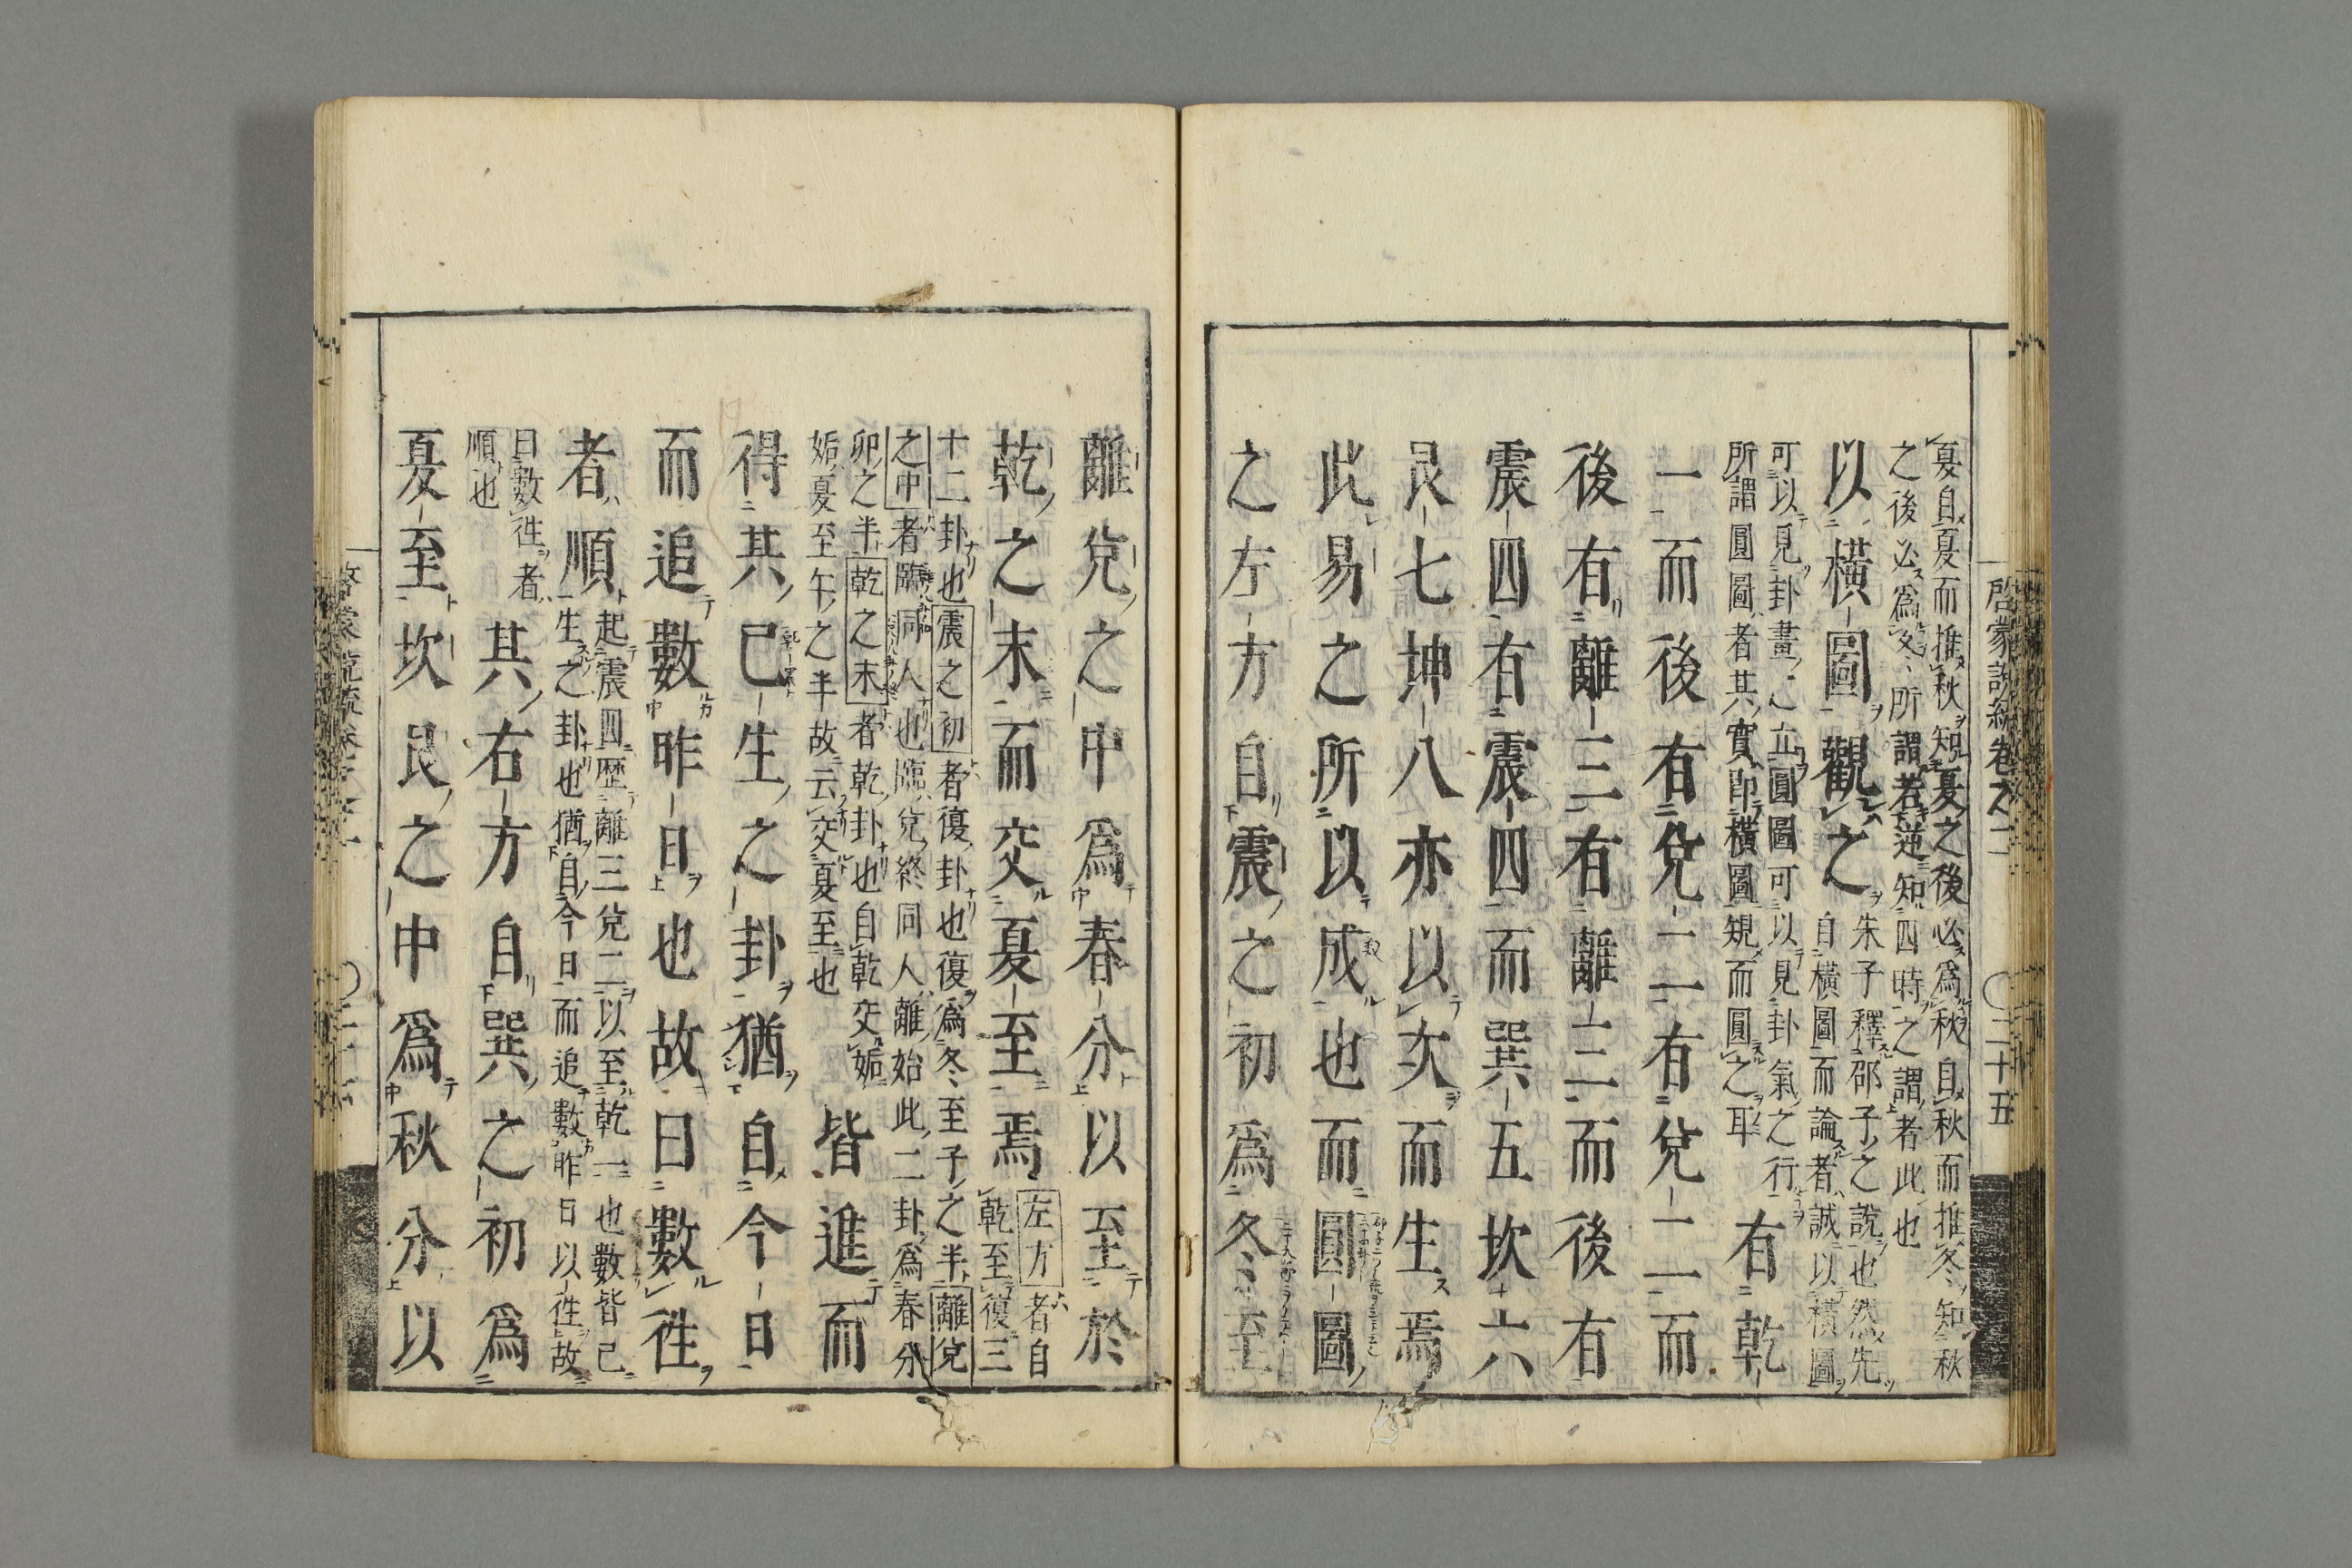 啓蒙説統卷之二 〇二十五
夏自夏而推秋知夏之後必爲秋自秋而推冬知秋
之後必爲冬所謂若逆知四時之謂者此也
以橫圖觀之
朱子釋邵子之說也然先
自橫圖而論者誠以橫圖
可以見卦畫之立圓圖可以見卦氣之行
所謂圓圖者其實即橫圖規而圓之耳
有乾
一而後有兌二有兌二而
後有離三有離三而後有
震四有震四而巽五坎六
艮七坤八亦以次而生焉
此易之所以成也而圓圖
之左方自震之初爲冬至
離兌之中爲春分以至於
乾之末而交夏至焉
左方者自
乾至復三
十二卦也震之初者復卦也復爲冬至子之半離兌
之中者臨同人也臨兌終同人離始此二卦爲春分
卯之半乾之末者乾卦也自乾交姤
姤夏至午之半故云交夏至也
皆進而
得其已生之卦猶自今日
而追數昨日也故曰數往
者順
起震四歷離三兌二以至乾一也數皆已
生之卦也猶自今日而追數昨日以往故
曰數往者
順也
其右方自巽之初爲
夏至坎艮之中爲秋分以